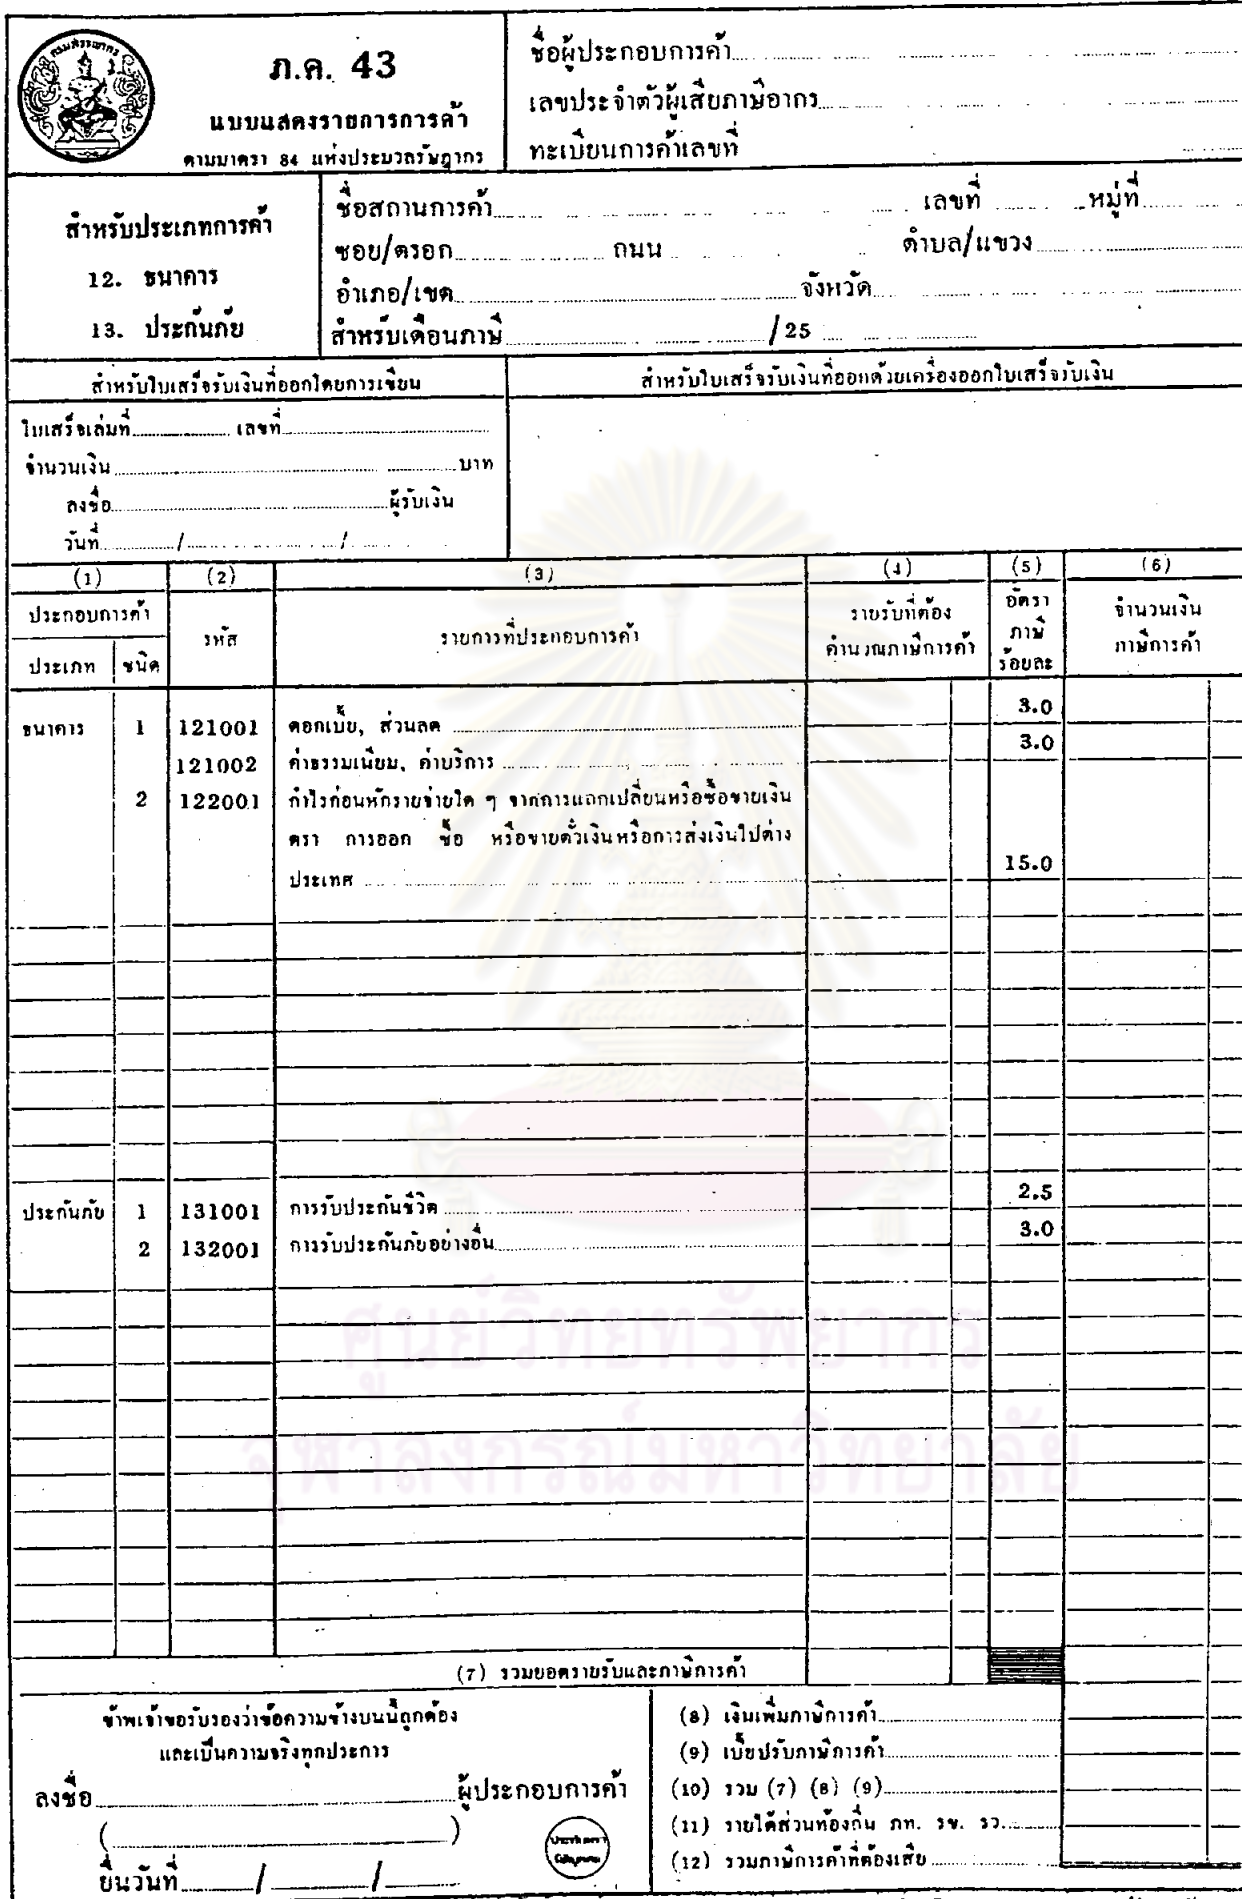 กรมสรรพากร
ภ.ค. 43
แบบแสดงรายการการค้า
ตามมาตรา 84 แห่งประมวลรัษฎากร
ชื่อผู้ประกอบการค้า
เลขประจำตัวผู้เสียภาษีอากร
ทะเบียนการค้าเลขที่
สำหรับประเภทการค้า
12. ธนาคาร
13. ประกันภัย
ชื่อสถานการค้า เลขที่ หมู่ที่
ซอย/ตรอก ถนน ตำบล/แขวง
อำเภอ/เขต จังหวัด
สำหรับเดือนภาษี /25
สำหรับใบเสร็จรับเงินที่ออกโดยการเขียน
ใบเสร็จเล่มที่ เลขที่
จำนวนเงิน บาท
ลงชื่อ ผู้รับเงิน
วันที่ / /
สำหรับใบเสร็จรับเงินที่ออกด้วยเครื่องออกใบเสร็จรับเงิน
(1) (2) (3) (4) (5) (6)
ประกอบการค้า
ประเภท ชนิด
รหัส
รายการที่ประกอบการค้า
รายรับที่ต้อง
คำนวณภาษีการค้า
อัตรา
ภาษี
ร้อยละ
จำนวนเงิน
ภาษีการค้า
ธนาคาร 1 121001 ดอกเบี้ย, ส่วนลด 3.0
121002 ค่าธรรมเนียม, ค่าบริการ 3.0
2 122001 กำไรก่อนหักรายจ่ายใด ๆ จากการแลกเปลี่ยนหรือซื้อขายเงิน
ตรา การออก ซื้อ หรือขายตั๋วเงินหรือการส่งเงินไปต่าง
ประเทศ 15.0
ประกันภัย 1 131001 การรับประกันชีวิต 2.5
2 132001 การรับประกันภัยอย่างอื่น 3.0
ศูนย์วิทยทรัพยากร
จุฬาลงกรณ์มหาวิทยาลัย
(7) รวมยอดรายรับและภาษีการค้า
ข้าพเจ้าขอรับรองว่าข้อความข้างบนนี้ถูกต้อง
และเป็นความจริงทุกประการ
ลงชื่อ ผู้ประกอบการค้า
( )
ยื่นวันที่ / /
ประทับตรา
นิติบุคคล
(8) เงินเพิ่มภาษีการค้า
(9) เบี้ยปรับภาษีการค้า
(10) รวม (7) (8) (9)
(11) รายได้ส่วนท้องถิ่น ภท. รข. รว.
(12) รวมภาษีการค้าที่ต้องเสีย